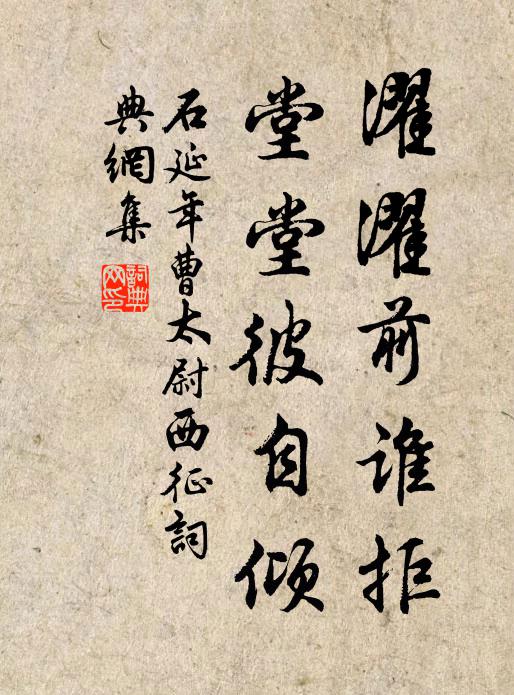 濯濯前誰拒
堂堂彼自傾
石延年曹太尉西征詞
典網集
詞典網印